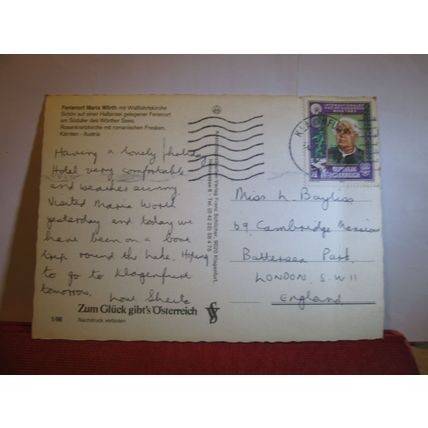 Ferienort Maria Wörth mit Wallfahrtskirche
Schön auf einer Halbinsel gelegener Ferienort
am Südufer des Wörther Sees.
Rosenkranzkirche mit romanischen Fresken.
Kärnten - Austria
Having a lovely holiday
Hotel very comfortable
and weather sunny.
Visited Maria Worth
yesterday and today we
have been on a boat
trip round the lake. Hoping
to go to Klagenfurt
tomorrow. Love Sheila
Zum Glück gibt's Österreich
1/86 Nachdruck verboten
Verlag Franz Schilcher, 9020 Klagenfurt,
KLAGENFURT
REPUBLIK
ÖSTERREICH
Miss L. Bayliss
69, Cambridge Mansions
Battersea Park,
LONDON. S.W.11
England